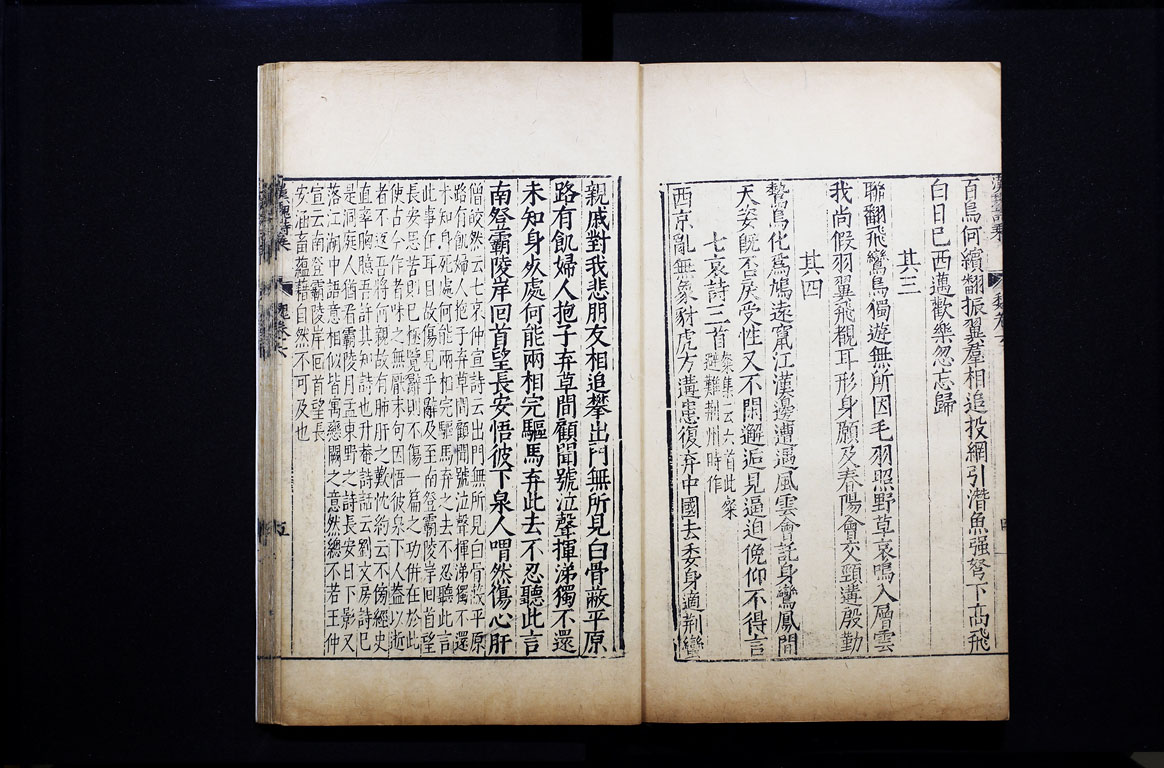 百鳥何繽翻振翼羣相追投網引潛魚强弩下高飛
白日已西邁歡樂忽忘歸
其三
聯翻飛鸞鳥獨遊無所因毛羽照野草哀鳴入層雲
我尚假羽翼飛覩爾形身願及春陽會交頸遘殷勤
其四
鷙鳥化為鳩遠竄江漢邊遭遇風雲會託身鸞鳳間
天姿既否戾受性又不閑邂逅見逼迫俛仰不得言
七哀詩三首
粲集云六首此粲
避難荆州時作
西京亂無象豺虎方遘患復弃中國去委身適荆蠻
親戚對我悲朋友相追攀出門無所見白骨蔽平原
路有飢婦人抱子弃草間顧聞號泣聲揮涕獨不還
未知身死處何能兩相完驅馬弃此去不忍聽此言
南登霸陵岸回首望長安悟彼下泉人喟然傷心肝
僧皎然云七哀仲宣詩云出門無所見白骨蔽平原
路有飢婦人抱子弃草間顧聞號泣聲揮涕獨不還
未知身死處何能兩相完驅馬弃之去不忍聽此言
此事在耳目故傷見乎辭及至南登霸陵岸回首望
長安思苦則已極覽辭則不傷一篇之功併在於此
使古今作者味之無厭末句因悟彼泉下人蓋以逝
者不返吾將何親故有肺肝之歎沈約云不傍經史
直率胸臆吾許其知詩也升菴詩話云劉文房詩已
是洞庭人猶看霸陵月孟東野之詩長安日下影又
落江湖中語意相似皆寓戀闕之意然總不若王仲
宣云南登霸陵岸回首望長
安涵畜蘊藉自然不可及也
五